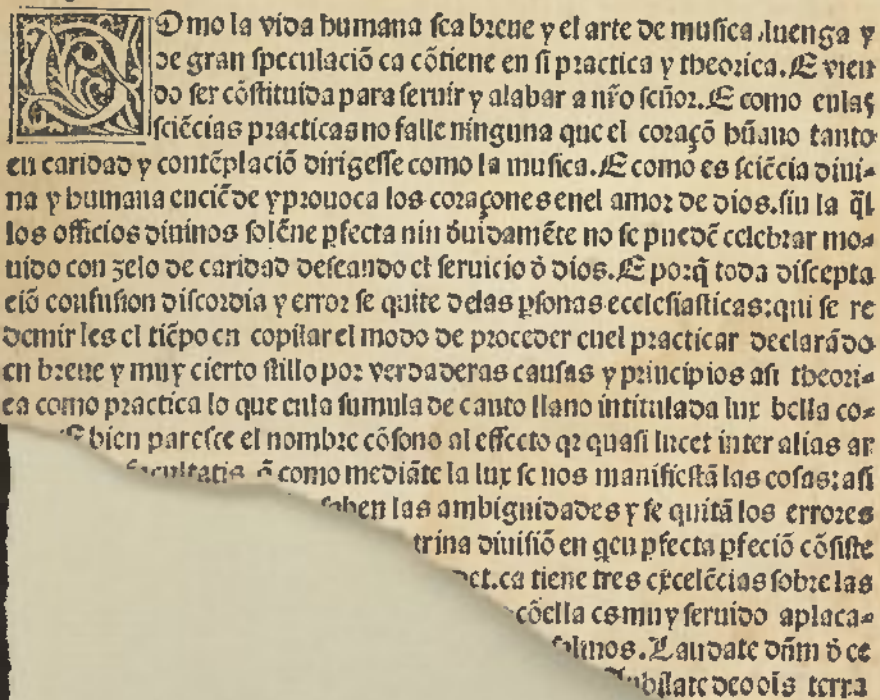 COmo la vida humana sea breue y el arte de musica luenga y
de gran speculaciō ca cōtiene en si practica y theorica. E vien
do ser cōstituida para seruir y alabar a nr̄o señor. E como enlas
sciēcias practicas no falle ninguna que el coraçō hūano tanto
en caridad y contēplaciō dirigesse como la musica. E como es sciēcia diui-
na y humana enciēde y prouoca los coraçones enel amor de dios. sin la q̄l
los officios diuinos solēne pfecta nin duidamēte no se puedē celebrar mo-
uido con zelo de caridad deseando el seruicio d̄ dios. E porq̄ toda discepta
ciō confusion discordia y error se quite delas psonas ecclesiasticas: qui se re
demir les el tiēpo en copilar el modo de proceder enel practicar declarādo
en breue y muy cierto stillo por verdaderas causas y principios asi theori-
ca como practica lo que enla sumula de canto llano intitulada lux bella co-
bien paresce el nombre cōsono al effecto qr quasi lucet inter alias ar
facultatis q̄ como mediāte la lux se nos manifiestā las cosas: asi
saben las ambiguidades y se quitā los errores
trina diuisiō en qcu pfecta pfeciō cōsiste
pct. ca tiene tres excelēcias sobre las
cōella es muy seruido aplaca-
salmos. Laudate dn̄m d̄ ce
Jubilate deo ois terra